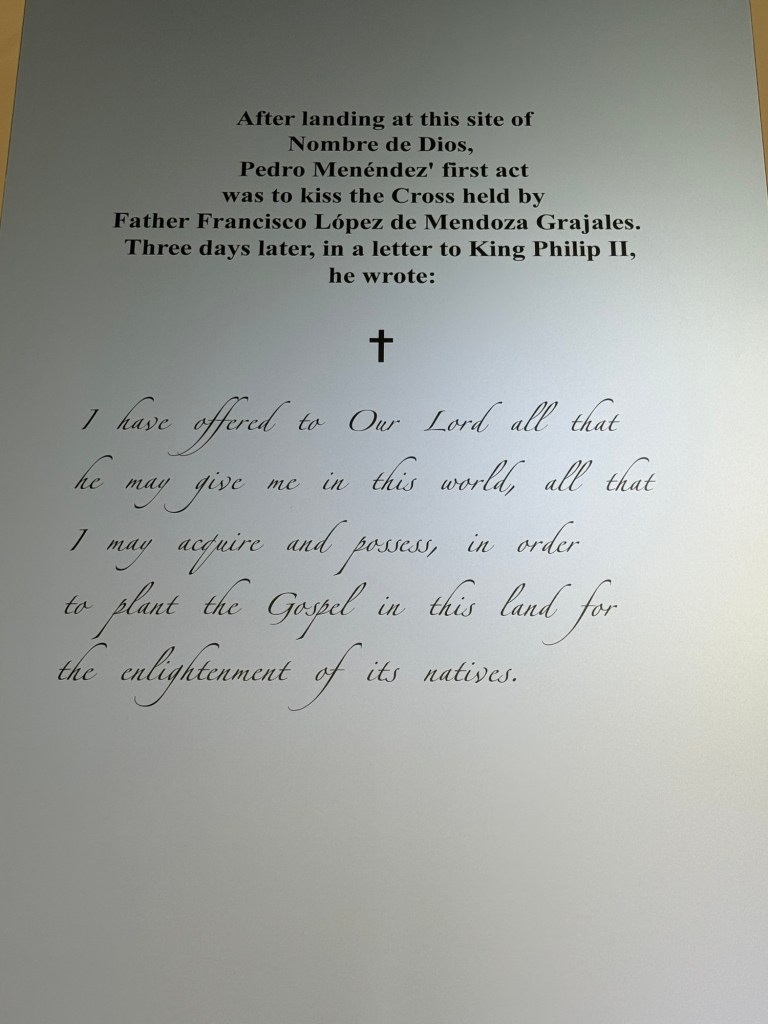 After landing at this site of
Nombre de Dios,
Pedro Menéndez' first act
was to kiss the Cross held by
Father Francisco López de Mendoza Grajales.
Three days later, in a letter to King Philip II,
he wrote:
I have offered to Our Lord all that
he may give me in this world, all that
I may acquire and possess, in order
to plant the Gospel in this land for
the enlightenment of its natives.